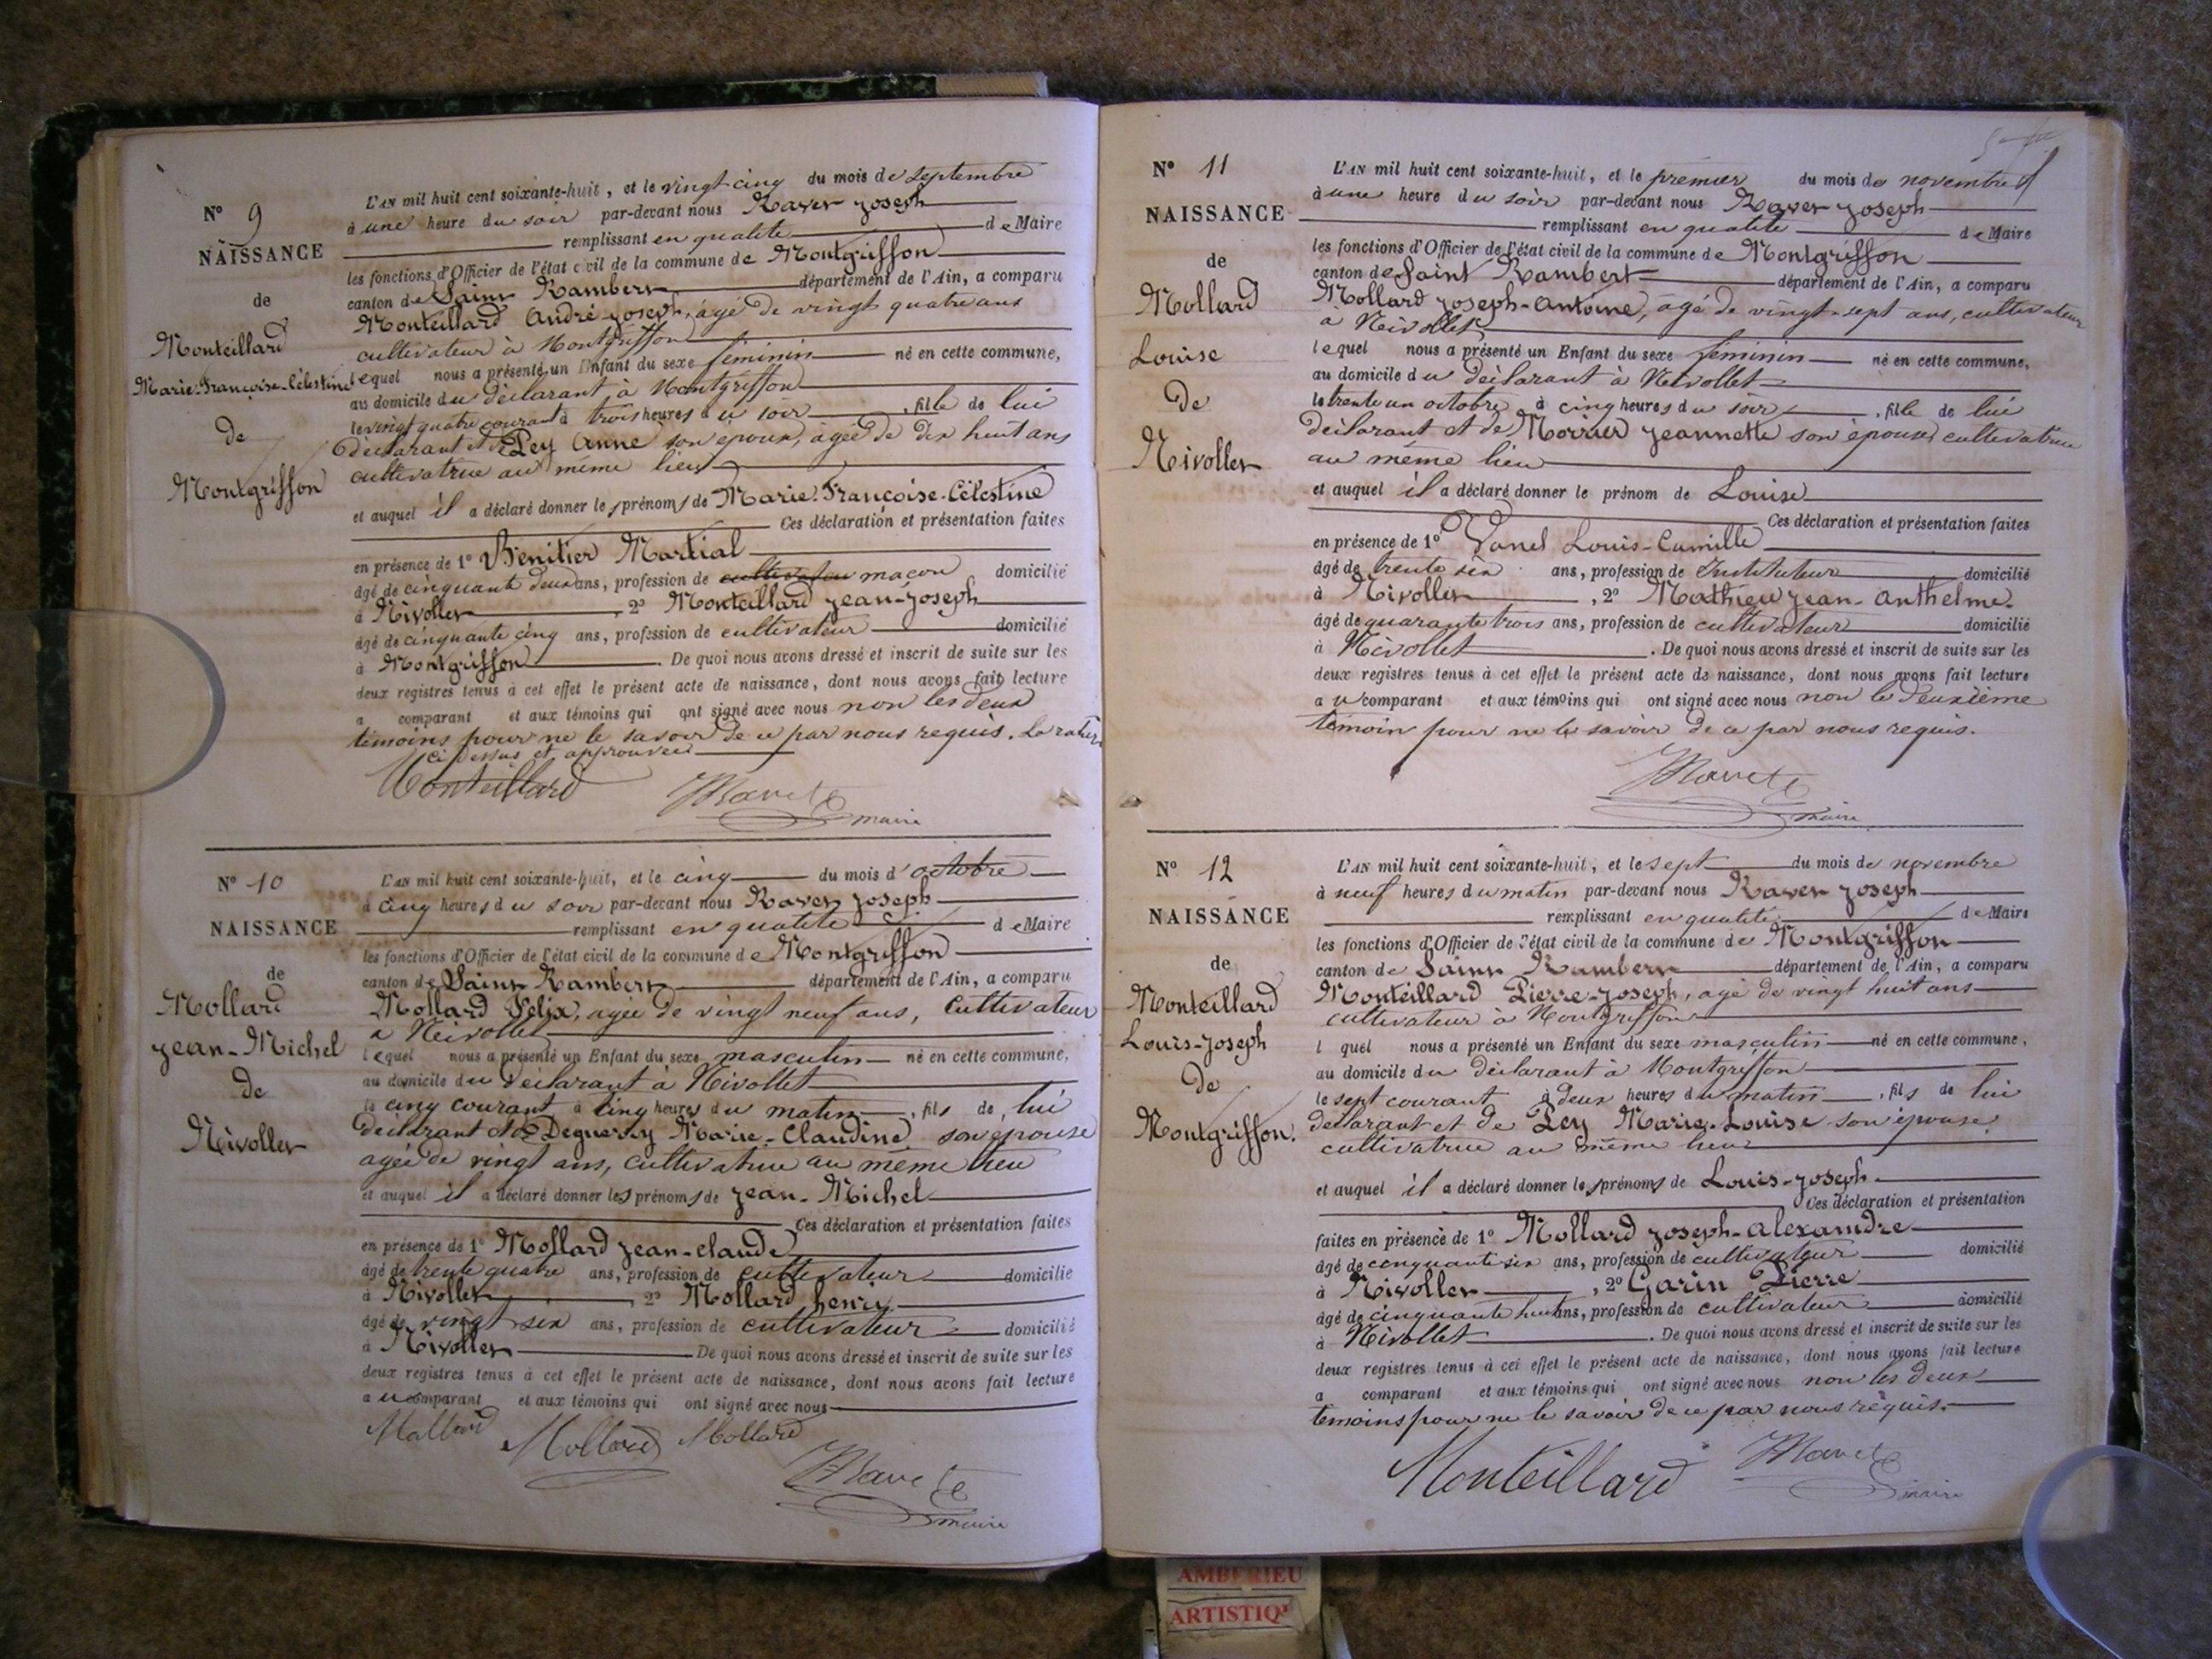 N° 9
NAISSANCE
de
Monteillard
Marie-Françoise-Célestine
de
Montgriffon
L'AN mil huit cent soixante-huit, et le vingt cinq du mois de septembre
à une heure du soir par-devant nous Ravet Joseph
remplissant en qualité de Maire
les fonctions d'Officier de l'état civil de la commune de Montgriffon
canton de Saint Rambert département de l'Ain, a comparu
Monteillard André-Joseph, âgé de vingt quatre ans
cultivateur à Montgriffon
lequel nous a présenté un Enfant du sexe féminin né en cette commune,
au domicile du déclarant à Montgriffon
le vingt quatre courant à trois heures du soir, fille de lui
déclarant et de Pey Anne son épouse, âgée de dix huit ans
cultivatrice au même lieu
et auquel il a déclaré donner les prénoms de Marie-Françoise-Célestine
Ces déclaration et présentation faites
en présence de 1° Benitier Martial
âgé de cinquante deux ans, profession de cultivateur maçon domicilié
à Nivollet, 2° Monteillard Jean-Joseph
âgé de cinquante cinq ans, profession de cultivateur domicilié
à Montgriffon. De quoi nous avons dressé et inscrit de suite sur les
deux registres tenus à cet effet le présent acte de naissance, dont nous avons fait lecture
a comparant et aux témoins qui ont signé avec nous non les deux
témoins pour ne le savoir de ce par nous requis. La rature
ci dessus est approuvée
Monteillard JRavet
maire
N° 10
NAISSANCE
de
Mollard
Jean-Michel
de
Nivollet
L'AN mil huit cent soixante-huit, et le cinq du mois d'octobre
à cinq heures du soir par-devant nous Ravet Joseph
remplissant en qualité de Maire
les fonctions d'Officier de l'état civil de la commune de Montgriffon
canton de Saint Rambert département de l'Ain, a comparu
Mollard Felix, agée de vingt neuf ans, cultivateur
à Neivollet
lequel nous a présenté un Enfant du sexe masculin né en cette commune,
au domicile du déclarant à Nivollet
le cinq courant à cinq heures du matin, fils de lui
déclarant et de Deguerry Marie-Claudine son épouse
agée de vingt ans, cultivatrice au même lieu
et auquel il a déclaré donner les prénoms de Jean-Michel
Ces déclaration et présentation faites
en présence de 1° Mollard Jean-Claude
âgé de trente quatre ans, profession de cultivateur domicilié
à Nivollet, 2° Mollard henri
âgé de vingt six ans, profession de cultivateur domicilié
à Nivollet De quoi nous avons dressé et inscrit de suite sur les
deux registres tenus à cet effet le présent acte de naissance, dont nous avons fait lecture
au comparant et aux témoins qui ont signé avec nous
Mollard Mollard Mollard
JRavet
maire
N° 11
NAISSANCE
de
Mollard
Louise
de
Neivollet
L'AN mil huit cent soixante-huit, et le premier du mois de novembre
à une heure du soir par-devant nous Ravet Joseph
remplissant en qualité de Maire
les fonctions d'Officier de l'état civil de la commune de Montgriffon
canton de Saint Rambert département de l'Ain, a comparu
Mollard Joseph-Antoine, âgé de vingt-sept ans, cultivateur
à Neivollet
lequel nous a présenté un Enfant du sexe féminin né en cette commune,
au domicile du déclarant à Neivollet
le trente un octobre à cinq heures du soir, fille de lui
déclarant et de Morrier Jeannette son épouse cultivatrice
au même lieu
et auquel il a déclaré donner le prénom de Louise
Ces déclaration et présentation faites
en présence de 1° Vanel Louis-Camille
âgé de trente six ans, profession de Instituteur domicilié
à Nivollet, 2° Mathieu Jean-Anthelme
âgé de quarante trois ans, profession de cultivateur domicilié
à Nivollet. De quoi nous avons dressé et inscrit de suite sur les
deux registres tenus à cet effet le présent acte de naissance, dont nous avons fait lecture
au comparant et aux témoins qui ont signé avec nous non le deuxième
témoin pour ne le savoir de ce par nous requis.
JRavet
maire
N° 12
NAISSANCE
de
Monteillard
Louis-Joseph
de
Montgriffon.
L'AN mil huit cent soixante-huit, et le sept du mois de novembre
à neuf heures du matin par-devant nous Ravet Joseph
remplissant en qualité de Maire
les fonctions d'Officier de l'état civil de la commune de Montgriffon
canton de Saint Rambert département de l'Ain, a comparu
Monteillard Pierre-Joseph, agé de vingt huit ans
cultivateur à Montgriffon
l quel nous a présenté un Enfant du sexe masculin né en cette commune,
au domicile du déclarant à Montgriffon
le sept courant à deux heures du matin, fils de lui
déclarant et de Pey Marie-Louise son épouse
cultivatrice au même lieu
et auquel il a déclaré donner les prénoms de Louis-Joseph
Ces déclaration et présentation
faites en présence de 1° Mollard Joseph-Alexandre
âgé de cinquante six ans, profession de cultivateur domicilié
à Nivollet, 2° Garin Pierre
âgé de cinquante huit ans, profession de cultivateur domicilié
à Nivollet. De quoi nous avons dressé et inscrit de suite sur les
deux registres tenus à cet effet le présent acte de naissance, dont nous avons fait lecture
a comparant et aux témoins qui ont signé avec nous non les deux
témoins pour ne le savoir de ce par nous requis.
Monteillard JRavet
maire
AMBERIEU
ARTISTIQ